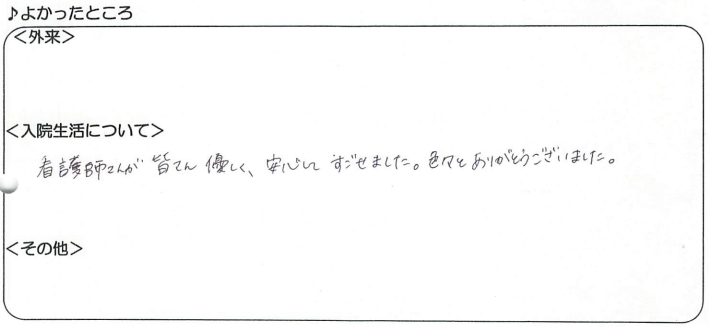 ♪よかったところ
＜外来＞
＜入院生活について＞
看護師さんが 皆さん 優しく、安心して すごせました。色々と ありがとうございました。
＜その他＞